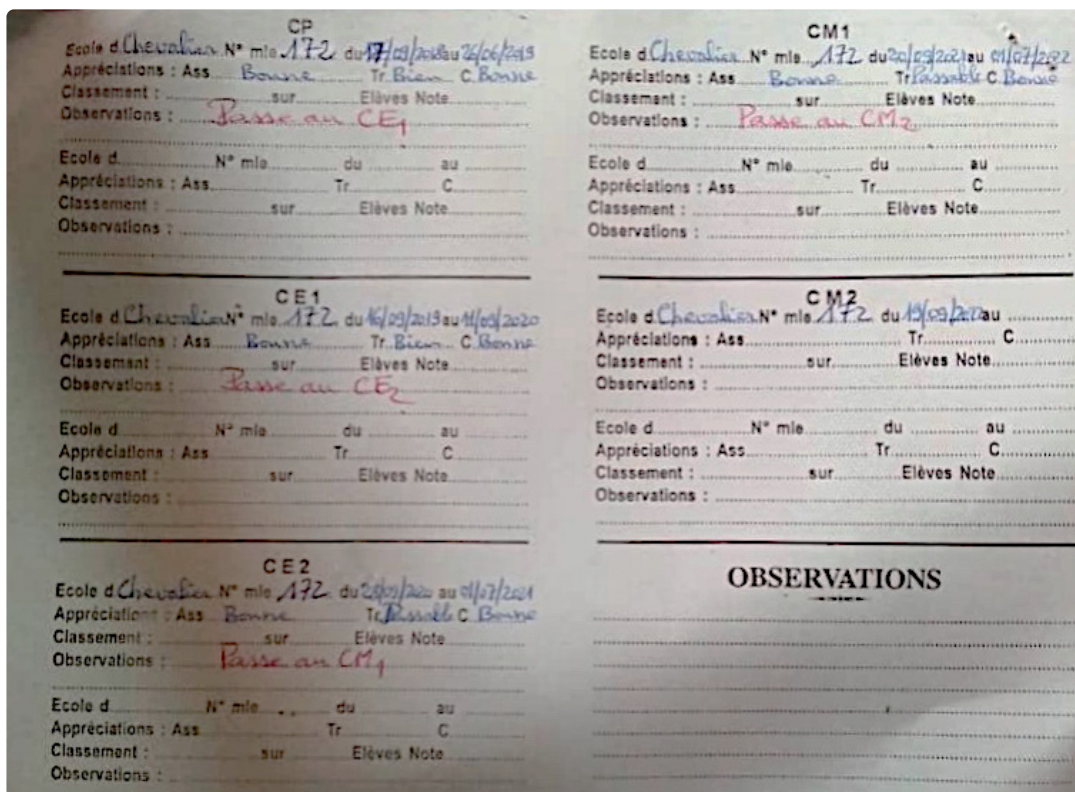 CP
Ecole d Chevalier N° mle 172 du 17/09/2018 au 26/06/2019
Appréciations : Ass Bonne Tr Bien C Bonne
Classement : sur Elèves Note
Observations : Passe au CE1
Ecole d N° mle du au
Appréciations : Ass Tr C
Classement : sur Elèves Note
Observations :
CE1
Ecole d Chevalier N° mle 172 du 16/09/2019 au 11/09/2020
Appréciations : Ass Bonne Tr Bien C Bonne
Classement : sur Elèves Note
Observations : Passe au CE2
Ecole d N° mle du au
Appréciations : Ass Tr C
Classement : sur Elèves Note
Observations :
CE2
Ecole d Chevalier N° mle 172 du au 01/07/2021
Appréciations : Ass Bonne Tr Passable C Bonne
Classement : sur Elèves Note
Observations : Passe au CM1
Ecole d N° mle du au
Appréciations : Ass Tr C
Classement : sur Elèves Note
Observations :
CM1
Ecole d Chevalier N° mle 172 du 20/09/2021 au 01/07/2022
Appréciations : Ass Bonne Tr Passable C Bonne
Classement : sur Elèves Note
Observations : Passe au CM2
Ecole d N° mle du au
Appréciations : Ass Tr C
Classement : sur Elèves Note
Observations :
CM2
Ecole d Chevalier N° mle 172 du 19/09/2022 au
Appréciations : Ass Tr C
Classement : sur Elèves Note
Observations :
Ecole d N° mle du au
Appréciations : Ass Tr C
Classement : sur Elèves Note
Observations :
OBSERVATIONS